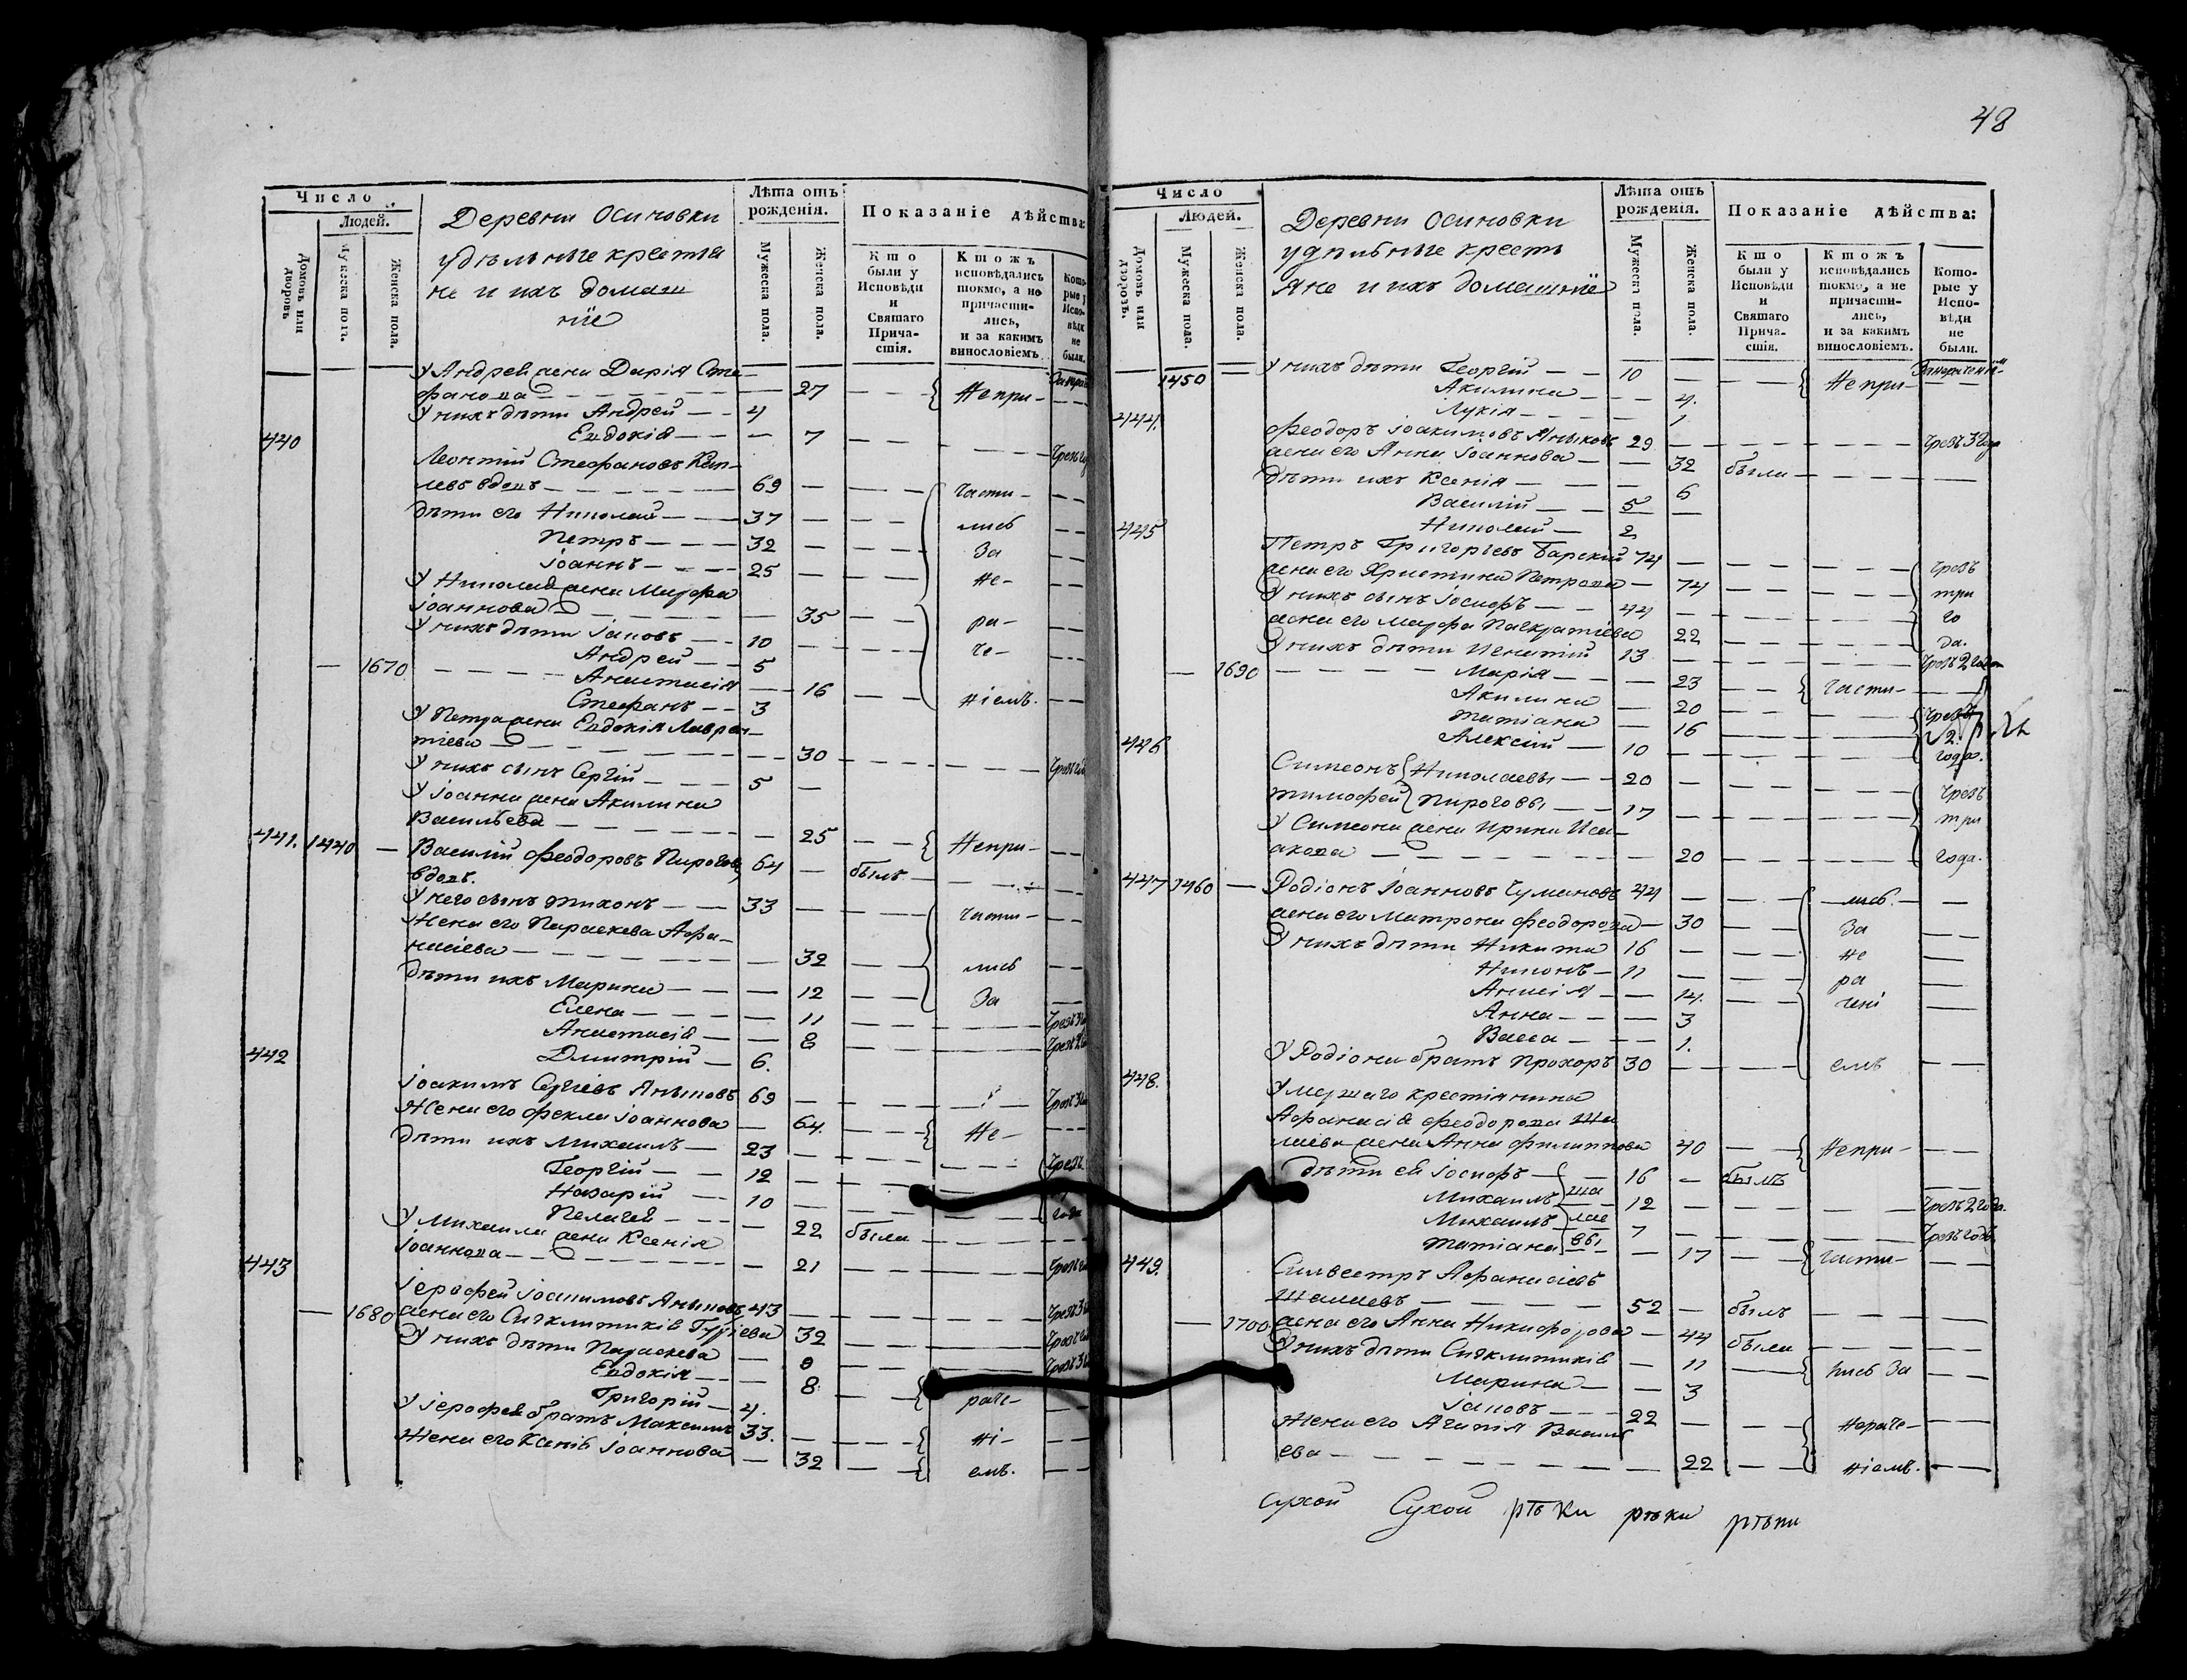 48
Число
Людей.
Домовъ или дворовъ
Мужеска полъ.
Женска пола.
Деревни Осиновки
удѣльные крестья
не и ихъ домаш
нїе
Лѣта отъ рожденія.
Мужеска пола.
Женска пола.
Показаніе дѣйства:
Кто были у Исповѣди и Святаго Прича-стія.
Ктожъ исповѣдались токмо, а не причасти-лись, и за какимъ винословіемъ
Кото-рые у Испо-вѣди не были.
У Андрея жена Дарія Сте-
фанова — 27 Непри-
У нихъ дѣти Андрей — 4
Евдокія — 7
440
Леонтій Стефановъ
вдовъ — 69 части-
дѣти его Николай — 37 лись
Петръ — 32 за
Іоаннъ — 25 не-
У Николая жена Марфа
Іоаннова — 35 ра-
У нихъ дѣти Іаковъ — 10 че-
Андрей — 5
1670 Анастасія — 16 ніемъ.
Стефанъ — 3
У Петра жена Евдокія Лаврен-
тіева — 30
У нихъ сынъ Сергій — 5
У Іоанна жена Акилина
Васильева — 25 Непри-
441. 1440 Василій Феодоровъ Пироговъ 64 былъ
вдовъ.
У него сынъ Тихонъ — 33 части-
Жена его Параскева Афа-
насіева — 32 лись
дѣти ихъ Марина — 12 за
Елена — 11
Анастасія — 8
Дмитрій — 6.
442
Іоакимъ Сергіевъ Аныковъ 69
Жена его Фекла Іоаннова — 64. Не-
дѣти ихъ Михаилъ — 23
Георгій — 12 Чрезъ
Назарій — 10
Пелагея — 22 были года
У Михаила жена Ксенія
Іоаннова — 21
443
Іерофей Іоакимовъ Аныковъ 43
1680 жена его Сигклитикія Гуріева 32
У нихъ дѣти Параскева — 8
Евдокія — 8 раче-
Григорій — 4.
У Іерофея братъ Максимъ 33. ні-
Жена его Ксенія Іоаннова — 32 емъ.
Число
Людей.
Домовъ или дворовъ.
Мужеска пола.
Женска пола.
Деревни Осиновки
удѣльные кресть
яне и ихъ домашнїе
Лѣта отъ рожденія.
Мужеска пола.
Женска пола.
Показаніе дѣйства:
Кто были у Исповѣди и Святаго Прича-стія.
Ктожъ исповѣдались токмо, а не причасти-лись, и за какимъ винословіемъ.
Кото-рые у Испо-вѣди не были.
1450 У нихъ дѣти Георгій — 10 Непри-
Акилина — 4.
Лукія — 1
444.
Феодоръ Іоакимовъ Аныковъ 29 Чрезъ 3 года
жена его Анна Іоаннова — 32 были
дѣти ихъ Ксенія — 6
Василій — 5
Николай — 2
445
Петръ Григорьевъ Барскій 74 Чрезъ
жена его Христина Петрова — 74 три
У нихъ сынъ Іосифъ — 44 го
жена его Марфа Панкратіева 22 да.
У нихъ дѣти Игнатій 13 Чрезъ 2 года
1690 Марія — 23 части-
Акилина — 20 Чрезъ
Татіана — 16 2.
Алексій — 10 года.
446
Симеонъ Николаевы — 20 Чрезъ
Тимофей Пироговы — 17 три
У Симеона жена Ирина Иса-
акова — 20 года.
447 1460 Родіонъ Іоанновъ Чумаковъ 44 лись.
жена его Матрона Феодорова — 30 за
У нихъ дѣти Никита 16 не
Никонъ — 11 ра
Анисія — 14. чені
Анна — 3
Васса — 1.
У Родіона братъ Прохоръ 30 емъ
448.
Умершаго крестіянина
Афанасія Феодорова Ша
лаева жена Анна Филиппова 40 Непри-
дѣти ея Іосифъ — 16 былъ
Михаилъ Ша 12 Чрезъ 2 года.
Михаилъ лае 7 Чрезъ годъ
Татіана вы — 17 части-
449.
Сильвестръ Афанасіевъ
Шалаевъ — 52 былъ
1700 жена его Анна Никифорова — 44 была
У нихъ дѣти Сигклитикія — 11 лись за
Марина — 3
Іаковъ — 22 нераче-
Жена его Агапія Василь
ева — 22 ніемъ.
Сухой Сухой рѣки рѣки рѣки